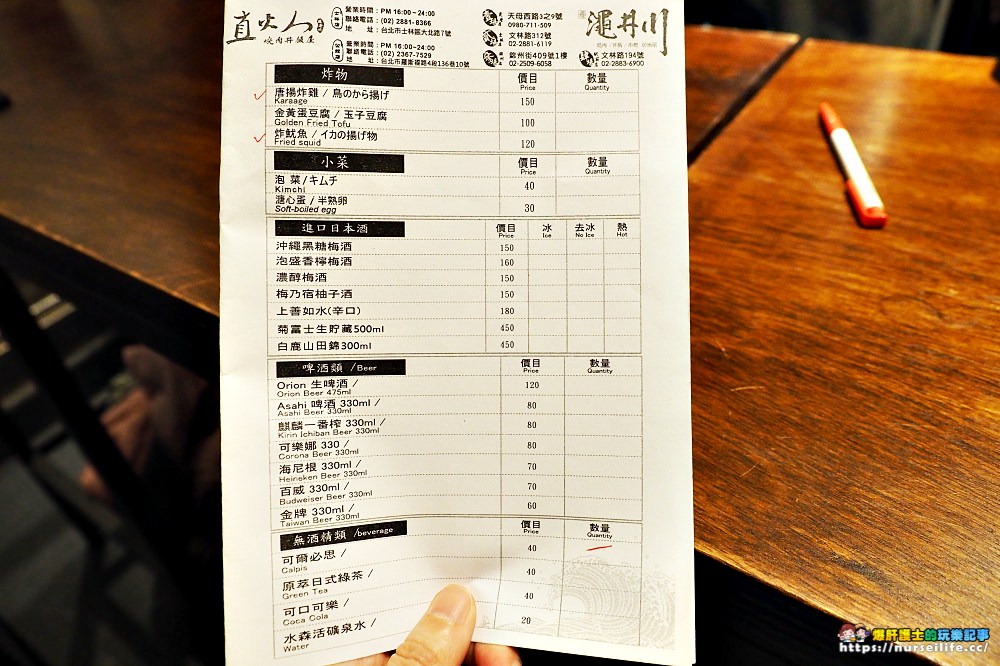 直火人
燒肉丼飯屋
士林店
營業時間：PM 16:00～24:00
聯絡電話：(02) 2881-8366
地 址：台北市士林區大北路7號
公館店
營業時間：PM 16:00~24:00
聯絡電話：(02) 2367-7529
地 址：台北市羅斯福路4段136巷10號
天母西路3之9號
0980-711-509
文林路312號
02-2881-6119
錦州街409號1樓
02-2509-6058
滬丼川
文林路194號
02-2883-6900
炸物 價目 數量
Price Quantity
唐揚炸雞 / 鳥のから揚げ 150
Karaage
金黃蛋豆腐 / 玉子豆腐 100
Golden Fried Tofu
炸魷魚 / イカの揚げ物 120
Fried squid
小菜 價目 數量
Price Quantity
泡 菜/キムチ 40
Kimchi
溏心蛋 / 半熟卵 30
Soft-boiled egg
進口日本酒 價目 冰 去冰 熱
Price Ice No Ice Hot
沖繩黑糖梅酒 150
泡盛香檸梅酒 160
濃醇梅酒 150
梅乃宿柚子酒 150
上善如水(辛口) 180
菊富士生貯藏500ml 450
白鹿山田錦300ml 450
啤酒類 /Beer 價目 數量
Price Quantity
Orion 生啤酒 / 120
Orion Beer 475ml
Asahi 啤酒 330ml / 80
Asahi Beer 330ml
麒麟一番榨 330ml / 80
Kirin Ichiban Beer 330ml
可樂娜 330 / 80
Corona Beer 330ml
海尼根 330ml / 70
Heineken Beer 330ml
百威 330ml / 70
Budweiser Beer 330ml
金牌 330ml / 60
Taiwan Beer 330ml
無酒精類 /beverage 價目 數量
Price Quantity
可爾必思 / 40
Calpis
原萃日式綠茶 / 40
Green Tea
可口可樂 / 40
Coca Cola
水森活礦泉水 / 20
Water
爆肝護士的玩樂記事
https://nurseilife.cc/